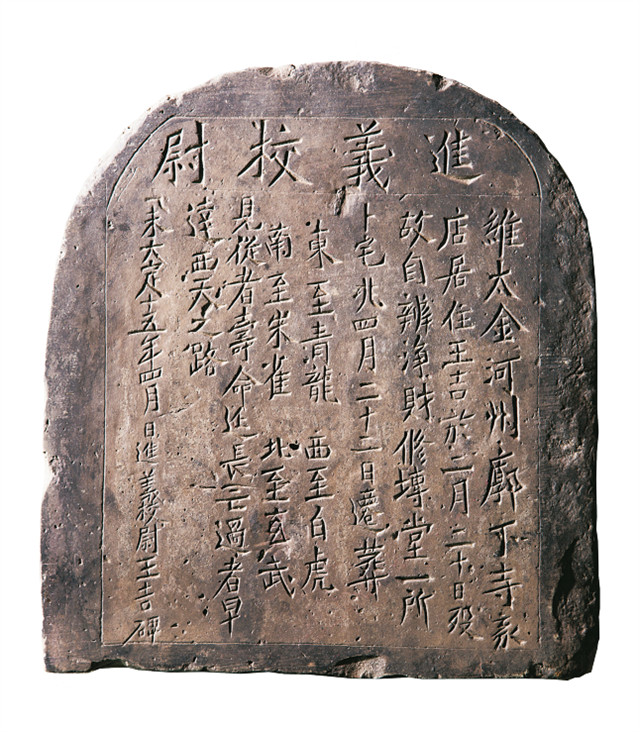 進義校尉
維大金河州廓下寺家
店居住王吉於二月二十日歿
故自辨淨財修塼堂一所
卜宅兆四月二十二日遷葬
東至青龍 西至白虎
南至朱雀 北至玄武
見從者壽命延長亡過者早
達西天之路
乙未大定十五年四月 日進義校尉王吉碑